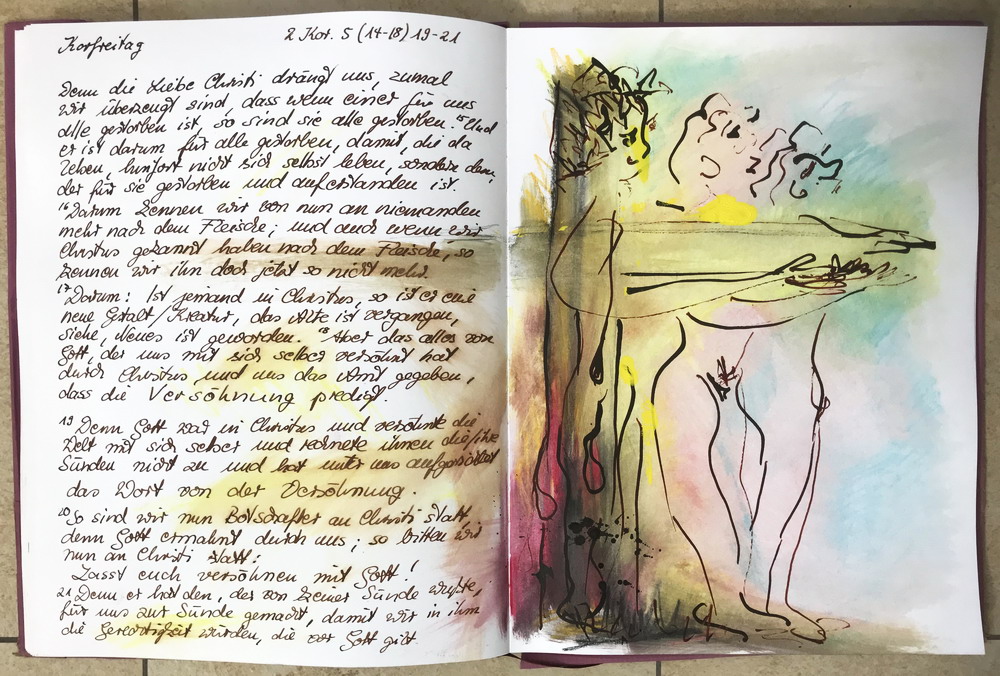 Karfreitag
2 Kor. 5 (14-18) 19-21
Denn die Liebe Christi drängt uns, zumal
wir überzeugt sind, dass wenn einer für uns
alle gestorben ist, so sind sie alle gestorben. 15 Und
er ist darum für alle gestorben, damit, die da
leben, hinfort nicht sich selbst leben, sondern dem,
der für sie gestorben und auferstanden ist.
16 Darum kennen wir von nun an niemanden
mehr nach dem Fleische; und auch wenn wir
Christus gekannt haben nach dem Fleische, so
kennen wir ihn doch jetzt so nicht mehr.
17 Darum: Ist jemand in Christus, so ist er eine
neue Gestalt/Kreatur, das Alte ist vergangen,
siehe, Neues ist geworden. 18 Aber das alles von
Gott, der uns mit sich selber versöhnt hat
durch Christus, und uns das Amt gegeben,
dass die Versöhnung predigt.
19 Denn Gott war in Christus und versöhnte die
Welt mit sich selber und rechnete ihnen die/ihre
Sünden nicht zu und hat unter uns aufgerichtet
das Wort von der Versöhnung.
20 So sind wir nun Botschafter an Christi statt,
denn Gott ermahnt durch uns; so bitten wir
nun an Christi statt:
Lasst euch versöhnen mit Gott!
21 Denn er hat den, der von keiner Sünde wußte,
für uns zur Sünde gemacht, damit wir in ihm
die Gerechtigkeit würden, die vor Gott gilt.